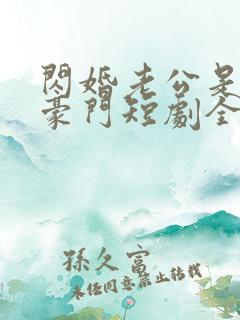 閃婚老公是
豪門短劇全
孫久富
未經同意禁止轉載